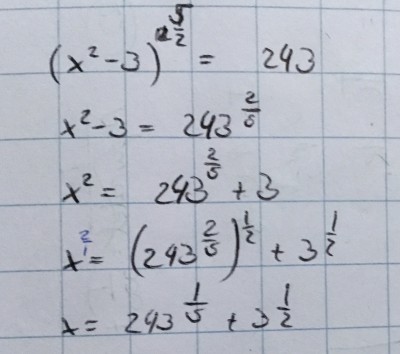 (x² - 3)^(5/2) = 243
x² - 3 = 243^(2/5)
x² = 243^(2/5) + 3
x^(2/1) = (243^(2/5))^(1/2) + 3^(1/2)
x = 243^(1/5) + 3^(1/2)